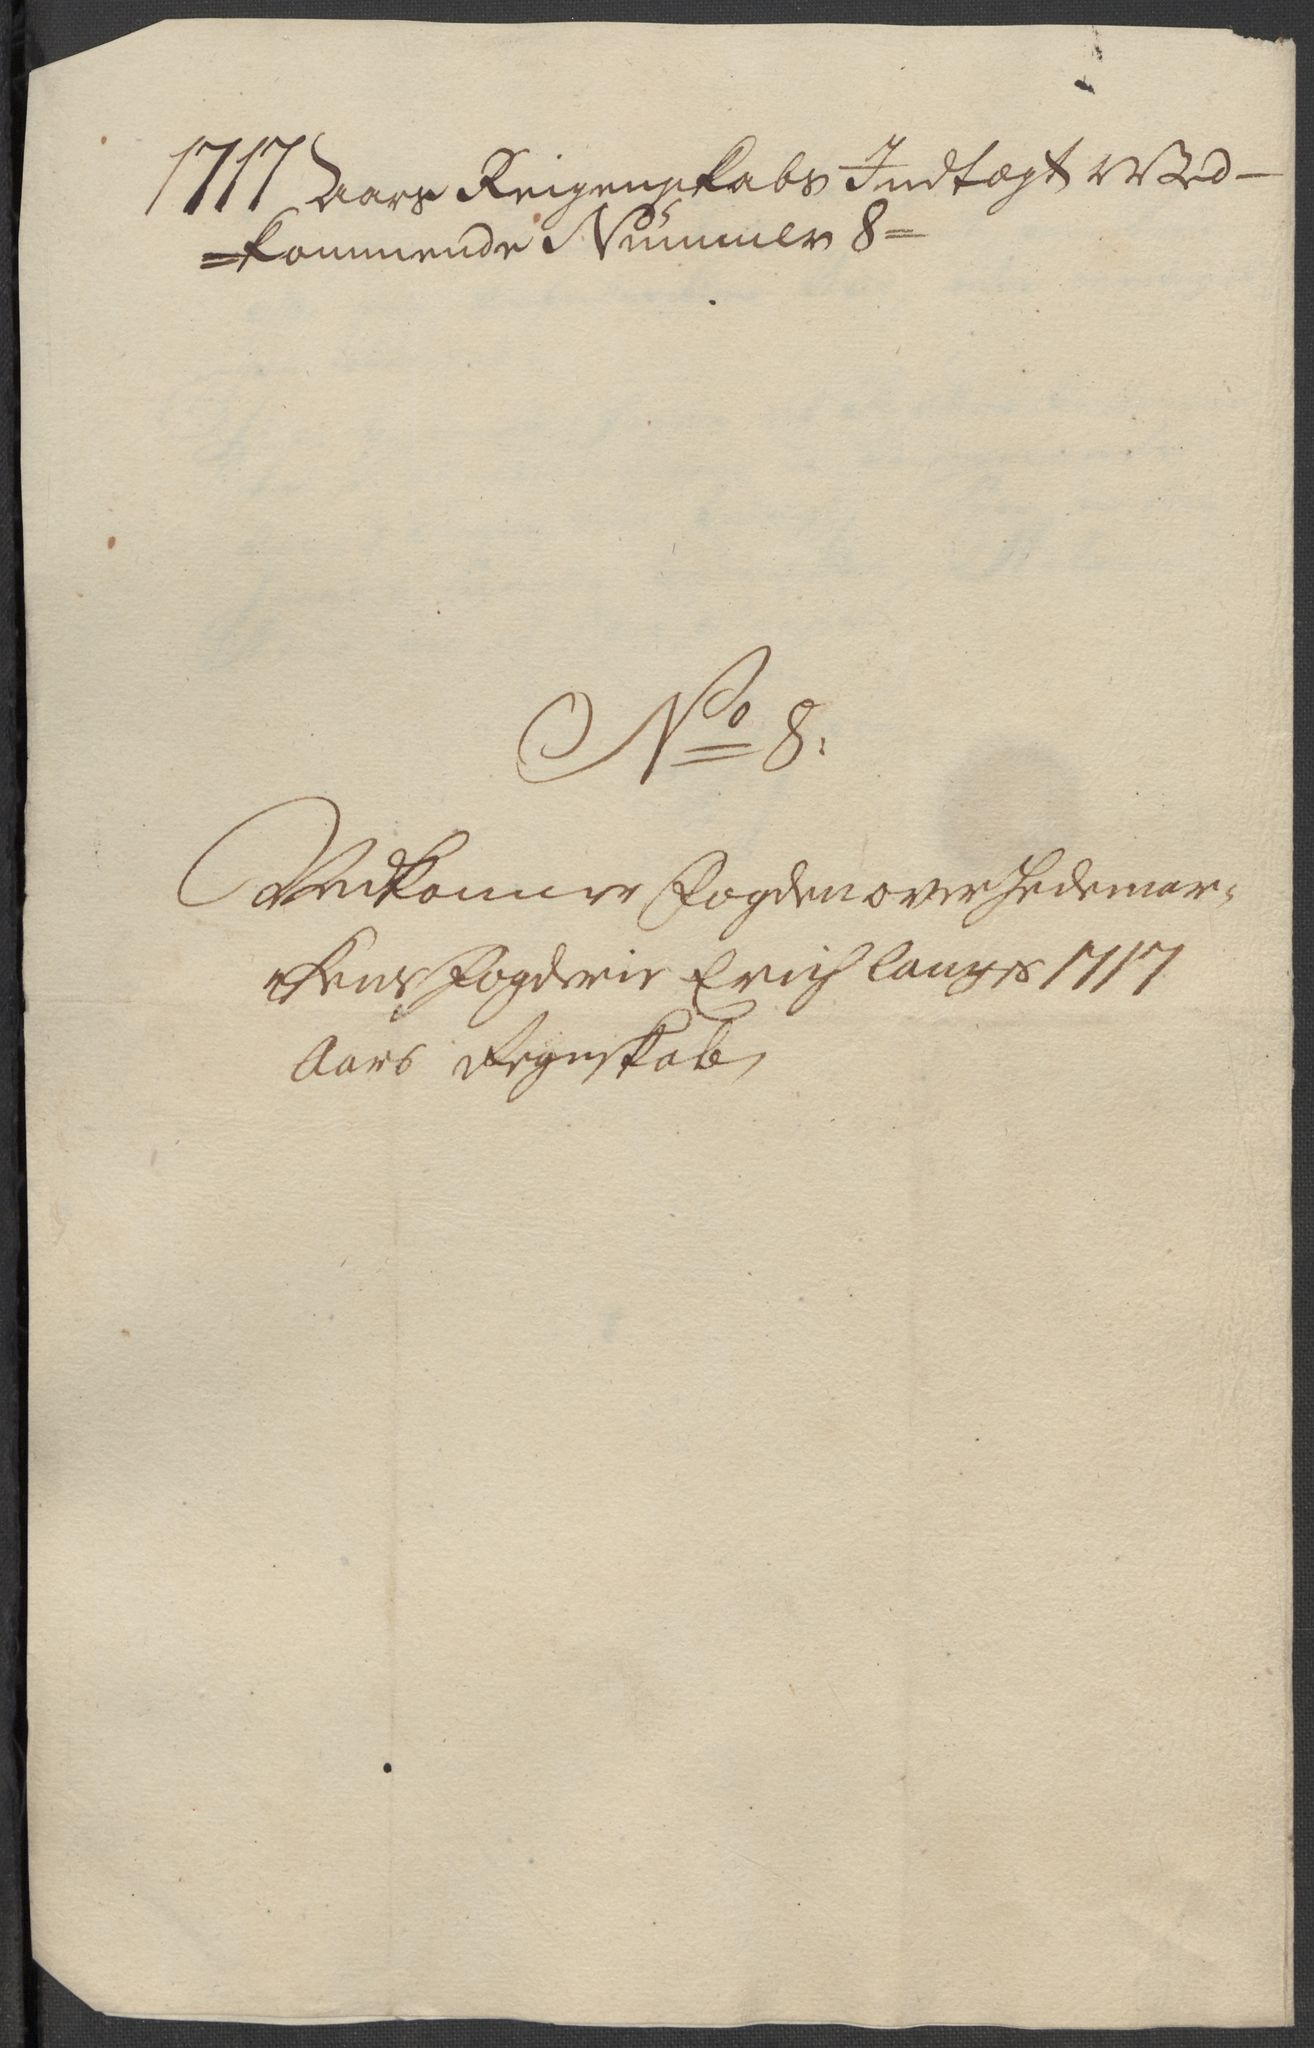 1717 Aars Reigenskabs Indtægt Ved-
=kommende Nummer 8=
No 8.
Vedkommer Fogden over Hedemar-
kens Fogderie Erich Langes 1717
Aars Regnskab,